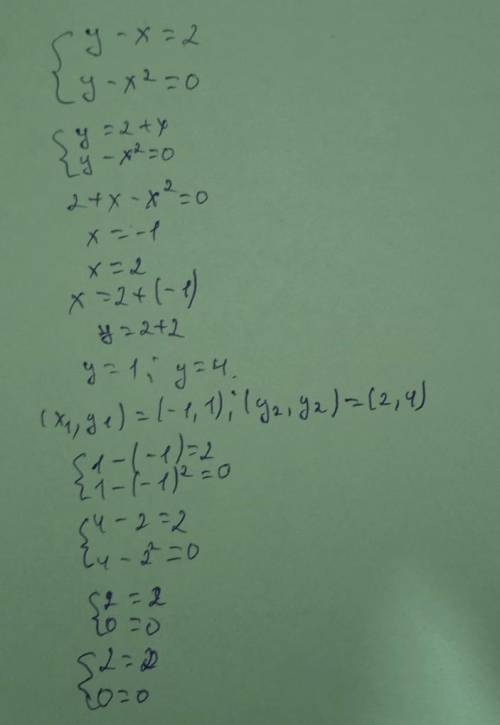 { y - x = 2
y - x² = 0
{ y = 2 + x
y - x² = 0
2 + x - x² = 0
x = -1
x = 2
x = 2 + (-1)
y = 2 + 2
y = 1; y = 4.
(x₁, y₁) = (-1, 1); (y₂, y₂) = (2, 4)
{ 1 - (-1) = 2
1 - (-1)² = 0
{ 4 - 2 = 2
4 - 2² = 0
{ 2 = 2
0 = 0
{ 2 = 2
0 = 0